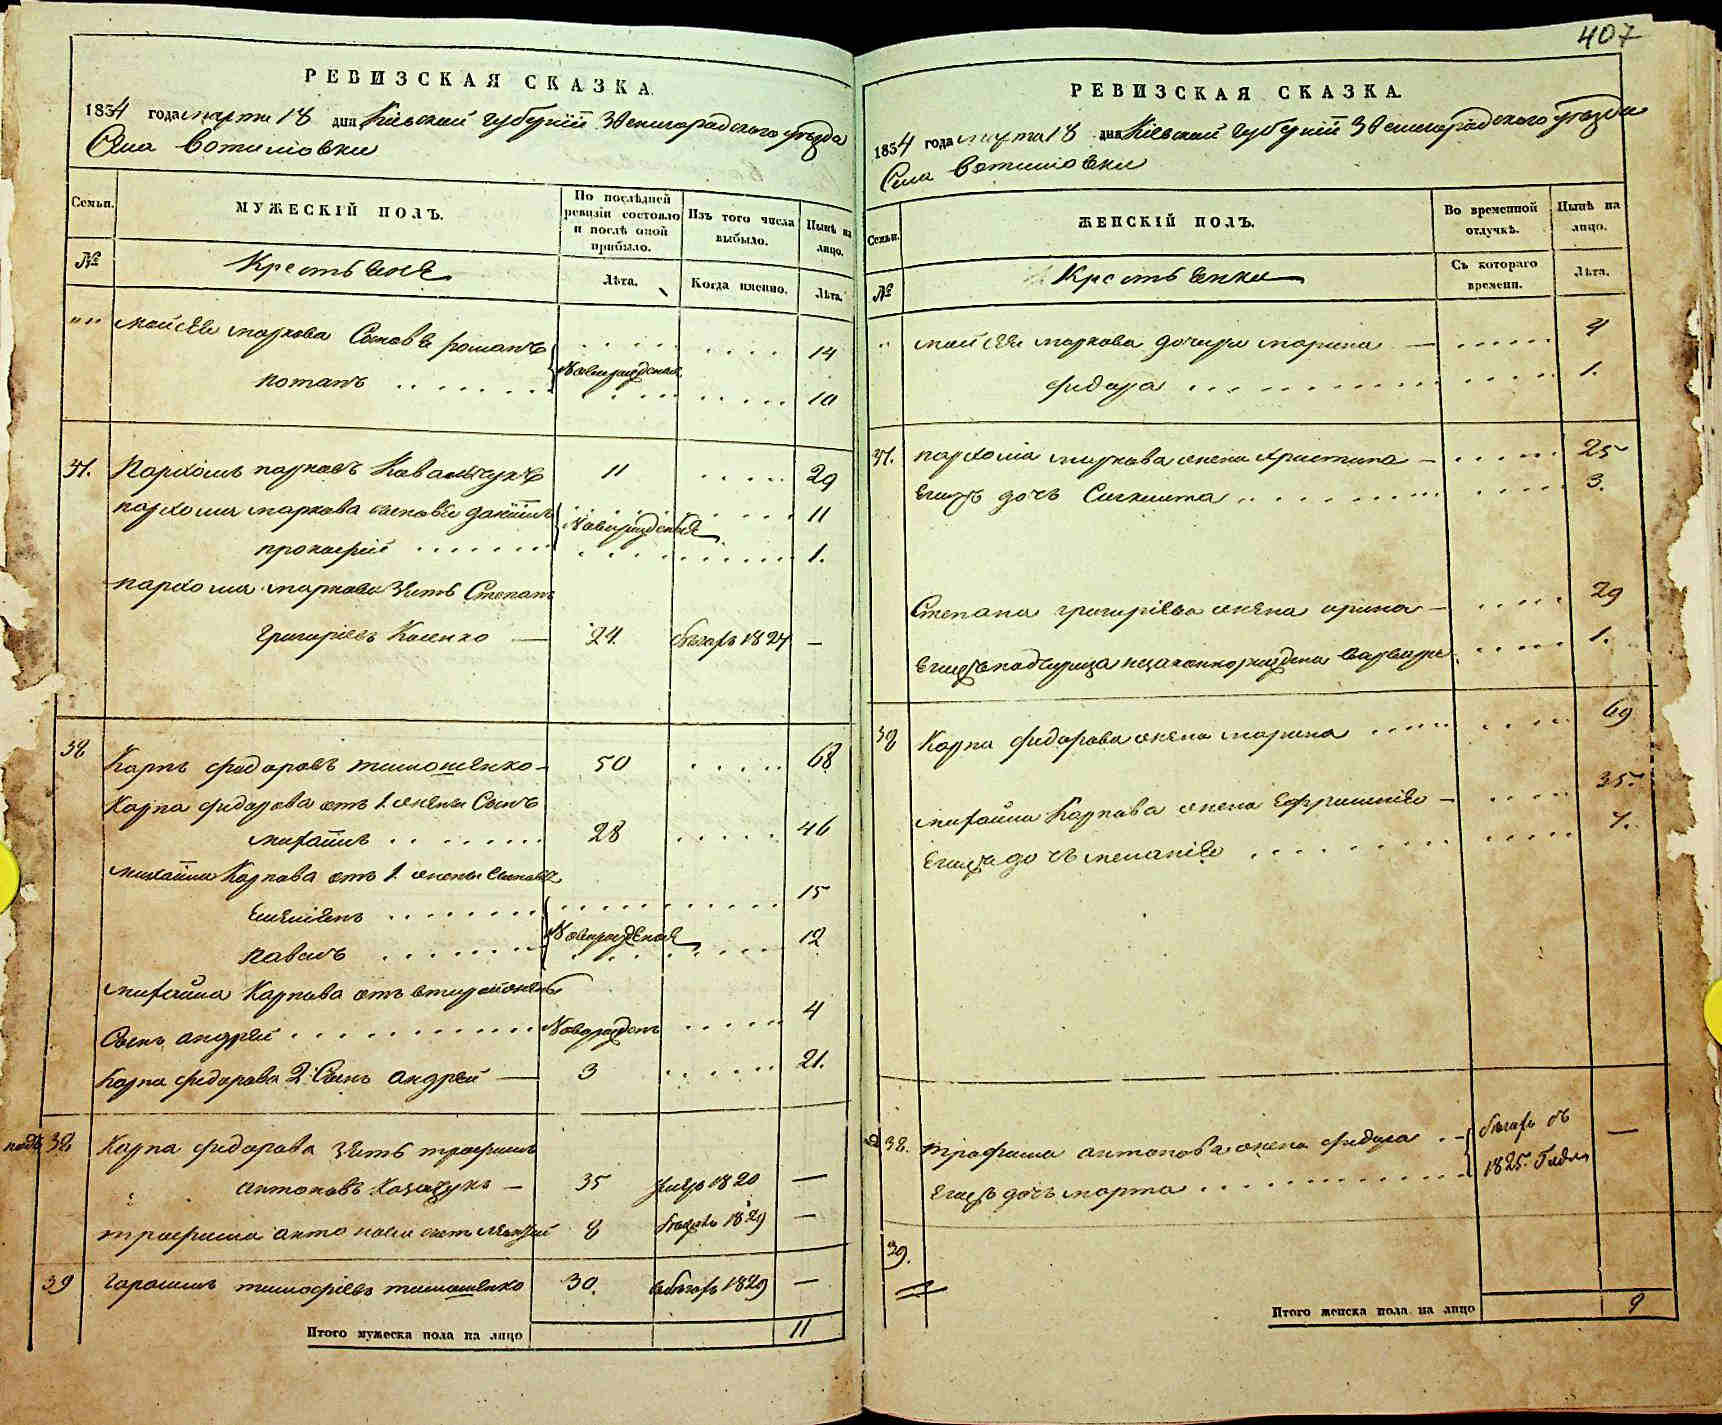 407
РЕВИЗСКАЯ СКАЗКА
1834 года марта 18 дня Кіевской губерніи Звенигородского уѣзда
Села
Семьи.
МУЖЕСКІЙ ПОЛЪ.
По послѣдней ревизіи состояло и послѣ оной прибыло.
Изъ того числа выбыло.
Нынѣ на лицо.
№
Крестьяне
Лѣта.
Когда именно.
Лѣта.
" " Мойсея Маркова Сыновья Романъ 14
Потапъ новорожденные 10
37. Пархомъ Марковъ Ковальчукъ 11 29
Пархома Маркова сыновья Даніилъ 11
Прокофій новорожденные 1.
Пархома Маркова зять Степанъ
Григоріевъ 24 бѣгахъ 1827 —
38 Карпъ Федоровъ Тимошенко 50 68
Карпа Федорова отъ 1 жены Сынъ
Михайло 28 46
Михайла Карпова отъ 1 жены Сыновья
Емельянъ 15
Павелъ новорожденные 12
Михайла Карпова отъ второй жены
Сынъ Андрей новорожденъ 4
Карпа Федорова 2 Сынъ Андрей — 3 21.
38 Карпа Федорова зять Трофимъ
Антоновъ — 35 умеръ 1820 —
Трофима Антонова сынъ 8 1829 —
39 Тимофѣевъ Тимошенко 30. 1829 —
Итого мужеска пола на лицо 11
РЕВИЗСКАЯ СКАЗКА.
1834 года марта 18 дня Кіевской губерніи Звенигородского уѣзда
Села
Семьи.
ЖЕНСКІЙ ПОЛЪ.
Во временной отлучкѣ.
Нынѣ на лицо.
№
Крестьянки
Съ котораго времени.
Лѣта.
" Мойсея Маркова дочери Марина — 4
Федора 1.
37. Пархома Маркова жена Христина — 25
Егожъ дочь 3.
Степана Григоріева жена Арина — 29
Егожъ падчерица незаконнорожденна Варвара 1.
38 Карпа Федорова жена Марина 69
Михайла Карпова жена Ефросинія — 35.
Егожъ дочь Меланія 7.
38. Трофима Антонова жена Федора бѣгахъ съ —
Егожъ дочь Марта 1825. Года
39.
Итого женска пола на лицо 9